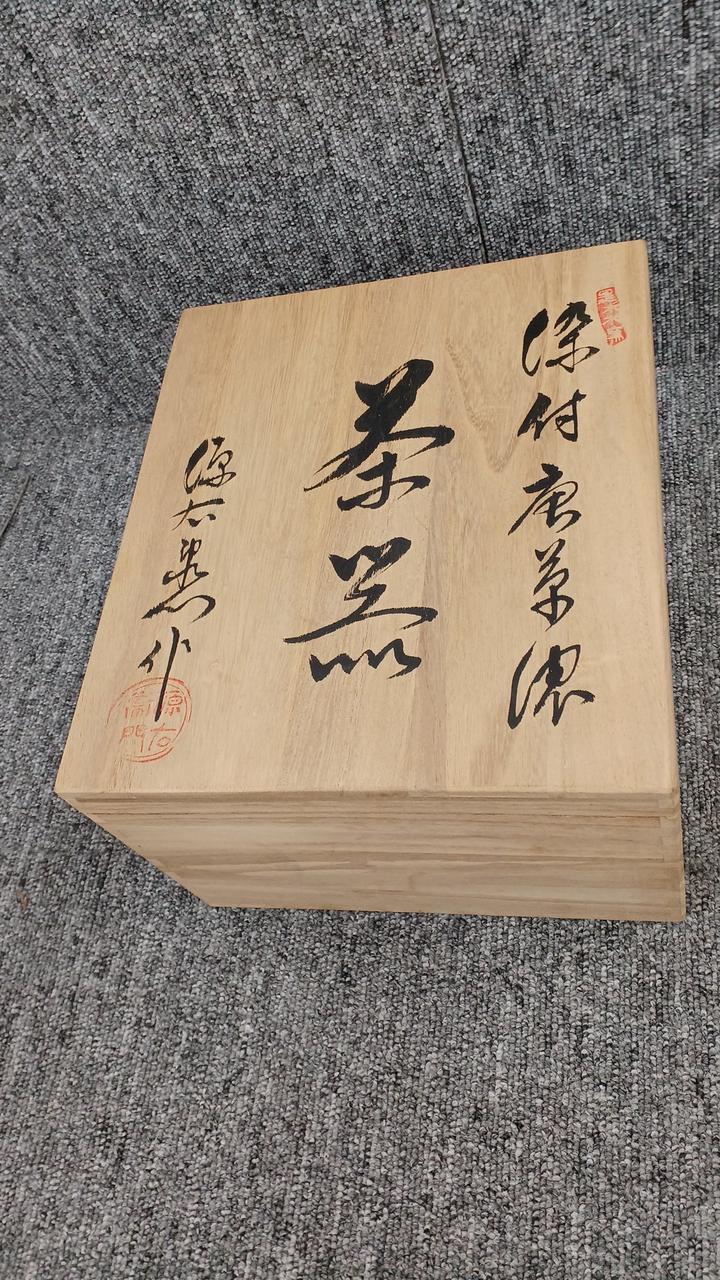 染付唐草濃
茶器
源右衛門作
源右衛門